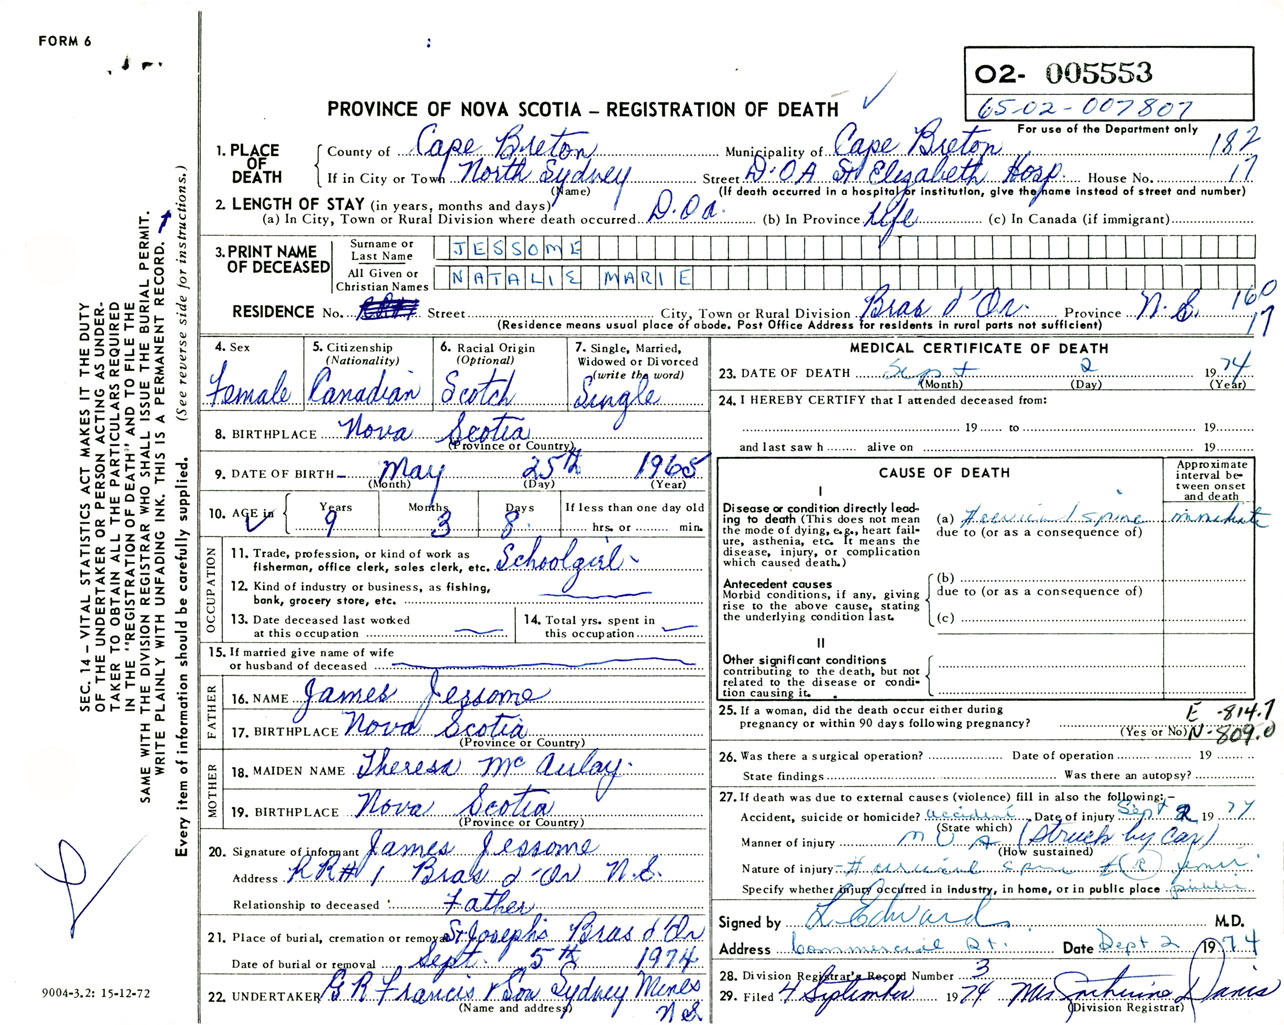 FORM 6
O2- 005553
65-02-007807
For use of the Department only
PROVINCE OF NOVA SCOTIA – REGISTRATION OF DEATH
1. PLACE OF DEATH
County of Cape Breton Municipality of Cape Breton 182
If in City or Town North Sydney Street D.O.A St Elizabeth Hosp. House No. 17
(Name) (If death occurred in a hospital or institution, give the name instead of street and number)
2. LENGTH OF STAY (in years, months and days)
(a) In City, Town or Rural Division where death occurred D.O.a. (b) In Province Life (c) In Canada (if immigrant)
3. PRINT NAME OF DECEASED
Surname or Last Name JESSOME
All Given or Christian Names NATALIE MARIE
RESIDENCE No. Street City, Town or Rural Division Bras d'Or. Province N.S. 160
17
(Residence means usual place of abode. Post Office Address for residents in rural parts not sufficient)
4. Sex
Female
5. Citizenship (Nationality)
Canadian
6. Racial Origin (Optional)
Scotch
7. Single, Married, Widowed or Divorced (write the word)
Single
8. BIRTHPLACE Nova Scotia
(Province or Country)
9. DATE OF BIRTH May 25th 1965
(Month) (Day) (Year)
10. AGE in Years Months Days If less than one day old
9 3 8 hrs. or min.
OCCUPATION
11. Trade, profession, or kind of work as fisherman, office clerk, sales clerk, etc. Schoolgirl
12. Kind of industry or business, as fishing, bank, grocery store, etc.
13. Date deceased last worked at this occupation
14. Total yrs. spent in this occupation
15. If married give name of wife or husband of deceased
FATHER
16. NAME James Jessome
17. BIRTHPLACE Nova Scotia
(Province or Country)
MOTHER
18. MAIDEN NAME Theresa McAulay
19. BIRTHPLACE Nova Scotia
(Province or Country)
20. Signature of informant James Jessome
Address RR#1 Bras d'Or N.S.
Relationship to deceased Father
21. Place of burial, cremation or removal St Joseph's Bras d'Or
Date of burial or removal Sept. 5th 1974
22. UNDERTAKER G R Francis & Son Sydney Mines
N.S.
(Name and address)
MEDICAL CERTIFICATE OF DEATH
23. DATE OF DEATH Sept 2 1974
(Month) (Day) (Year)
24. I HEREBY CERTIFY that I attended deceased from:
19 to 19
and last saw h alive on 19
CAUSE OF DEATH
Approximate interval between onset and death
I
Disease or condition directly leading to death (This does not mean the mode of dying, e.g., heart failure, asthenia, etc. It means the disease, injury, or complication which caused death.)
(a) spine immediate
due to (or as a consequence of)
Antecedent causes
Morbid conditions, if any, giving rise to the above cause, stating the underlying condition last.
(b)
due to (or as a consequence of)
(c)
II
Other significant conditions contributing to the death, but not related to the disease or condition causing it.
25. If a woman, did the death occur either during pregnancy or within 90 days following pregnancy?
(Yes or No)
E -814.7
N-809.0
26. Was there a surgical operation? Date of operation 19
State findings Was there an autopsy?
27. If death was due to external causes (violence) fill in also the following:–
Accident, suicide or homicide? accident Date of injury Sept 2 1974
(State which)
Manner of injury M V A (Struck by Car)
(How sustained)
Nature of injury
Specify whether injury occurred in industry, in home, or in public place public
Signed by L Edwards M.D.
Address Commercial St. Date Sept 2 1974
28. Division Registrar's Record Number 3
29. Filed 4 September 1974 Mrs Catherine Davis
(Division Registrar)
SEC. 14 – VITAL STATISTICS ACT MAKES IT THE DUTY
OF THE UNDERTAKER OR PERSON ACTING AS UNDER-
TAKER TO OBTAIN ALL THE PARTICULARS REQUIRED
IN THE "REGISTRATION OF DEATH" AND TO FILE THE
SAME WITH THE DIVISION REGISTRAR WHO SHALL ISSUE THE BURIAL PERMIT.
WRITE PLAINLY WITH UNFADING INK. THIS IS A PERMANENT RECORD.
Every item of information should be carefully supplied. (See reverse side for instructions.)
9004-3.2: 15-12-72